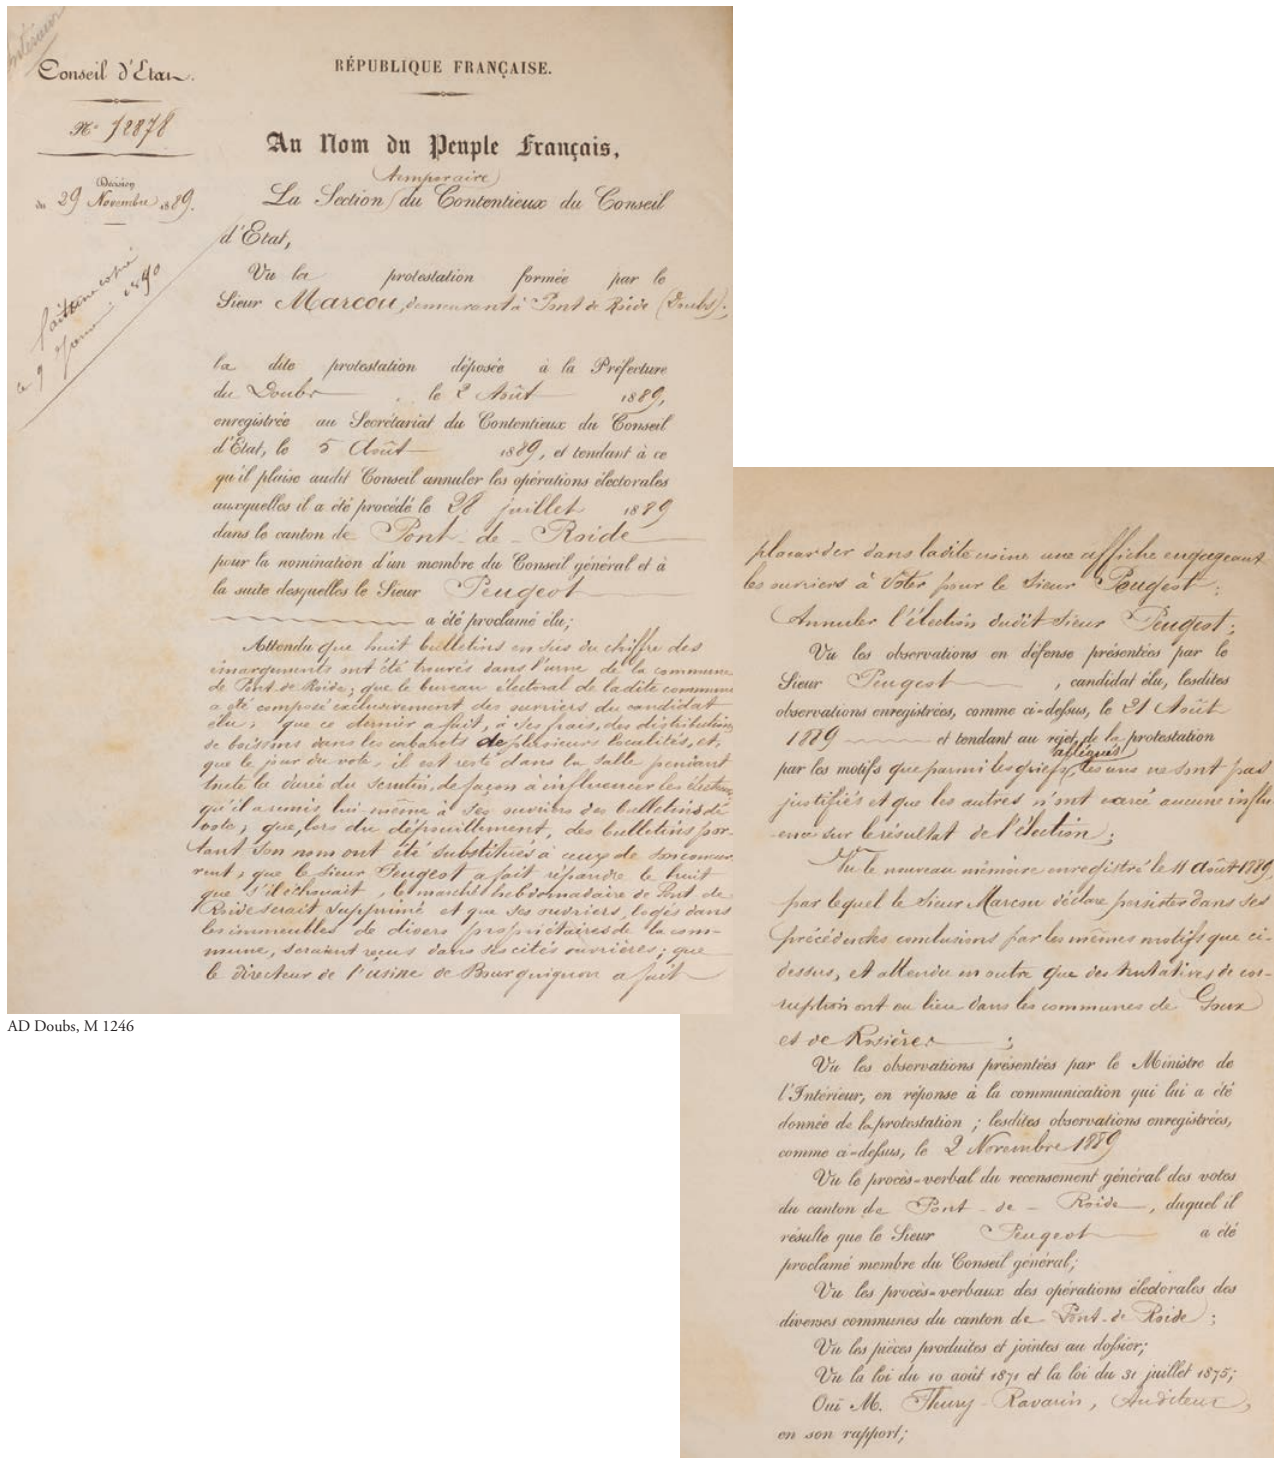 Intérieur
Conseil d'Etat.
N° 72878
Décision
du 29 Novembre 1889.
le 9 Janvier 1890
RÉPUBLIQUE FRANÇAISE.
Au Nom du Peuple Français,
(temporaire)
La Section du Contentieux du Conseil
d'Etat,
Vu la protestation formée par le
Sieur Marcou, demeurant à Pont de Roide (Doubs);
la dite protestation déposée à la Préfecture
du Doubs, le 2 Août 1889,
enregistrée au Secrétariat du Contentieux du Conseil
d'État, le 5 Août 1889, et tendant à ce
qu'il plaise audit Conseil annuler les opérations électorales
auxquelles il a été procédé le 28 juillet 1889
dans le canton de Pont-de-Roide
pour la nomination d'un membre du Conseil général et à
la suite desquelles le Sieur Peugeot
a été proclamé élu;
Attendu que huit bulletins en sus du chiffre des
émargements ont été trouvés dans l'urne de la commune
de Pont de Roide; que le bureau électoral de ladite commune
a été composé exclusivement des ouvriers du candidat
élu; que ce dernier a fait, à ses frais, des distributions
de boissons dans les cabarets de plusieurs localités, et,
que le jour du vote, il est resté dans la salle pendant
toute la durée du scrutin, de façon à influencer les électeurs
qu'il a remis lui même à ses ouvriers des bulletins de
vote; que, lors du dépouillement, des bulletins por-
tant son nom ont été substitués à ceux de son concur
rent; que le sieur Peugeot a fait répandre le bruit
que s'il échouait, le marché hebdomadaire de Pont de
Roide serait supprimé et que ses ouvriers, logés dans
les immeubles de divers propriétaires de la com-
mune, seraient reçus dans ses cités ouvrières; que
le directeur de l'usine de Bourguignon a fait
AD Doubs, M 1246
placarder dans ladite usine une affiche engageant
les ouvriers à voter pour le Sieur Peugeot;
Annuler l'élection dudit Sieur Peugeot;
Vu les observations en défense présentées par le
Sieur Peugeot, candidat élu, lesdites
observations enregistrées, comme ci-dessus, le 21 Août
1889 et tendant au rejet de la protestation
allégués
par les motifs que parmi les griefs, les uns ne sont pas
justifiés et que les autres n'ont exercé aucune influ
ence sur le résultat de l'élection;
Vu le nouveau mémoire enregistré le 11 Août 1889,
par lequel le Sieur Marcou déclare persister dans ses
précédentes conclusions par les mêmes motifs que ci-
dessus, et attendu en outre que des tentatives de cor-
ruption ont eu lieu dans les communes de Goux
et de Rosières;
Vu les observations présentées par le Ministre de
l'Intérieur, en réponse à la communication qui lui a été
donnée de la protestation; lesdites observations enregistrées,
comme ci-dessus, le 2 Novembre 1889
Vu le procès-verbal du recensement général des votes
du canton de Pont-de-Roide, duquel il
résulte que le Sieur Peugeot a été
proclamé membre du Conseil général;
Vu les procès-verbaux des opérations électorales des
diverses communes du canton de Pont-de Roide;
Vu les pièces produites et jointes au dossier;
Vu la loi du 10 août 1871 et la loi du 31 juillet 1875;
Ouï M. Thury-Ravarin, Auditeur,
en son rapport;